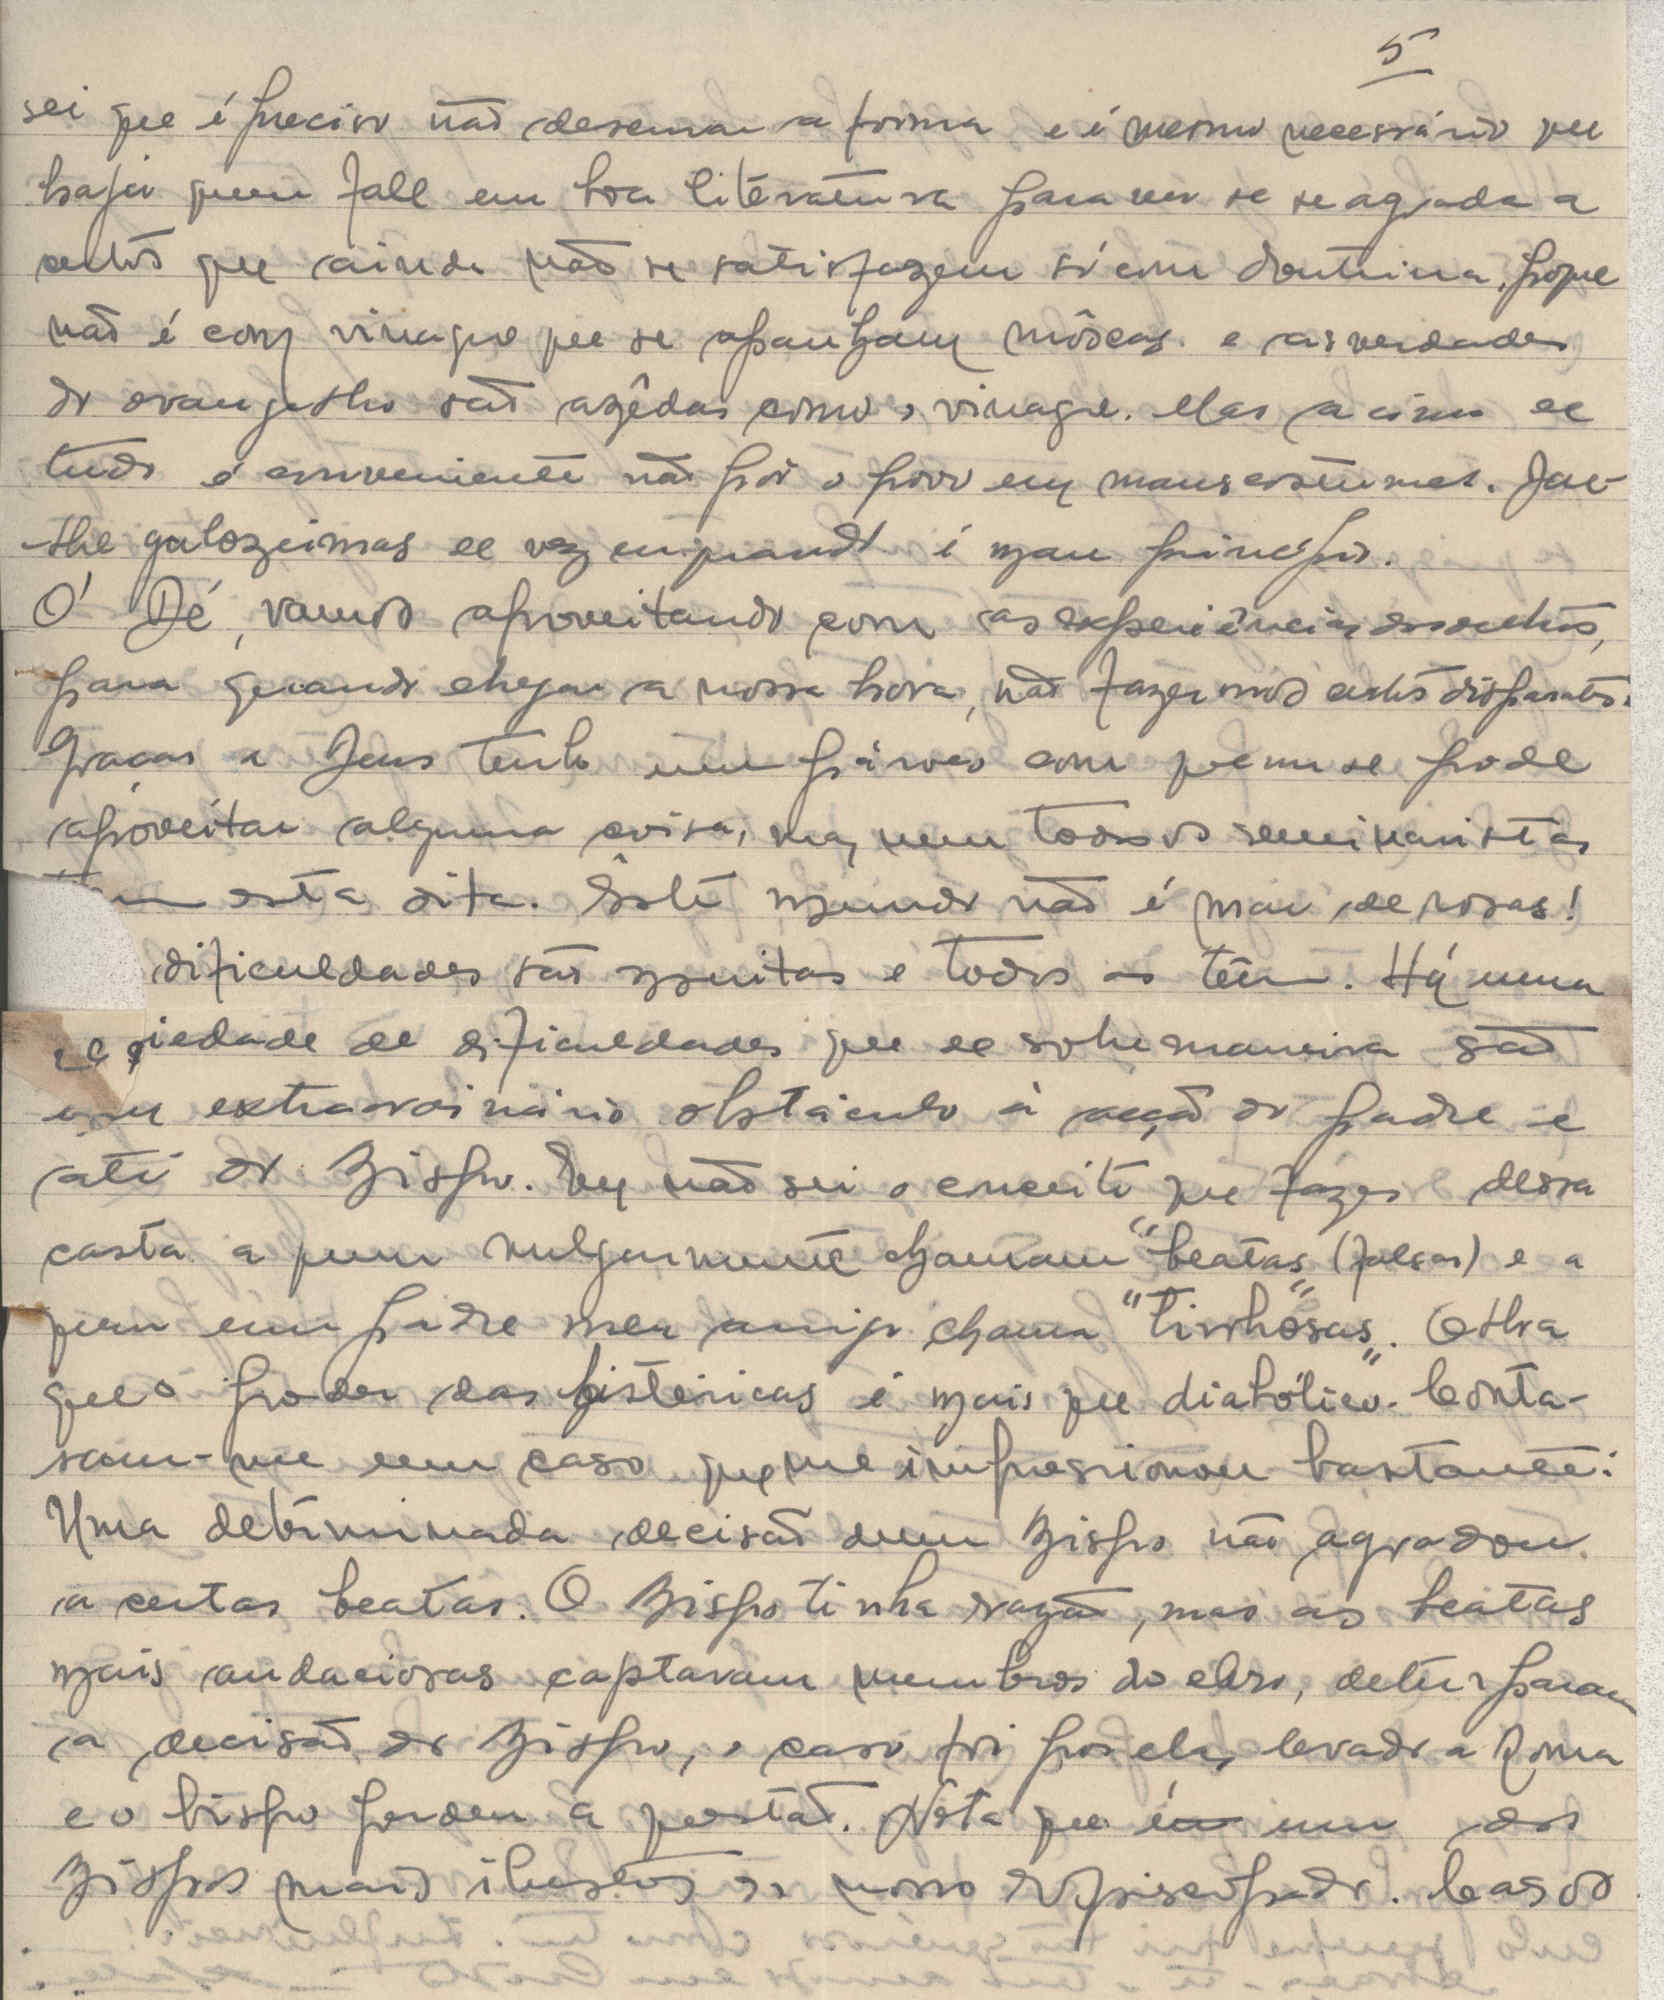 5
sei que é preciso não descurar a forma e é mesmo necessário que
haja quem fale em boa literatura para ver se se agrada a
certos que ainda não se satisfazem só com doutrina, porque
não é com vinagre que se apanham môscas e as verdades
do evangelho são azêdas como o vinagre. Mas acima de
tudo é conveniente não pôr o povo em maus costumes. Dar-
lhe gulozeimas de vez em quando é mau princípio.
Ó Dé, vamos aproveitando com as experiências dos outros,
para quando chegar a nossa hora, não fazermos certos disparates.
Graças a Deus tenho um pároco com quem se pode
aproveitar alguma coisa, mas nem todos os seminaristas
têm esta dita. Êste mundo não é mar de rosas!
dificuldades são muitas e todos as têm. Há uma
variedade de dificuldades que de sobremaneira são
um extraordinário obstáculo à acção do padre e
até do Bispo. Eu não sei o conceito que fazes dessa
casta a quem vulgarmente chamam "beatas" (falsas) e a
quem um padre meu amigo chama "tinhosas". Olha
que o poder das histéricas é mais que diabólico. Conta-
ram-me um caso que me impressionou bastante:
Uma determinada decisão dum Bispo não agradou
a certas beatas. O Bispo tinha razão, mas as beatas
mais audaciosas captavam membros do clero, deturparam
a decisão do Bispo, o caso foi por elas levado a Roma
e o bispo perdeu a questão. Nota que é um dos
Bispos mais ilustres do nosso Episcopado. Casos